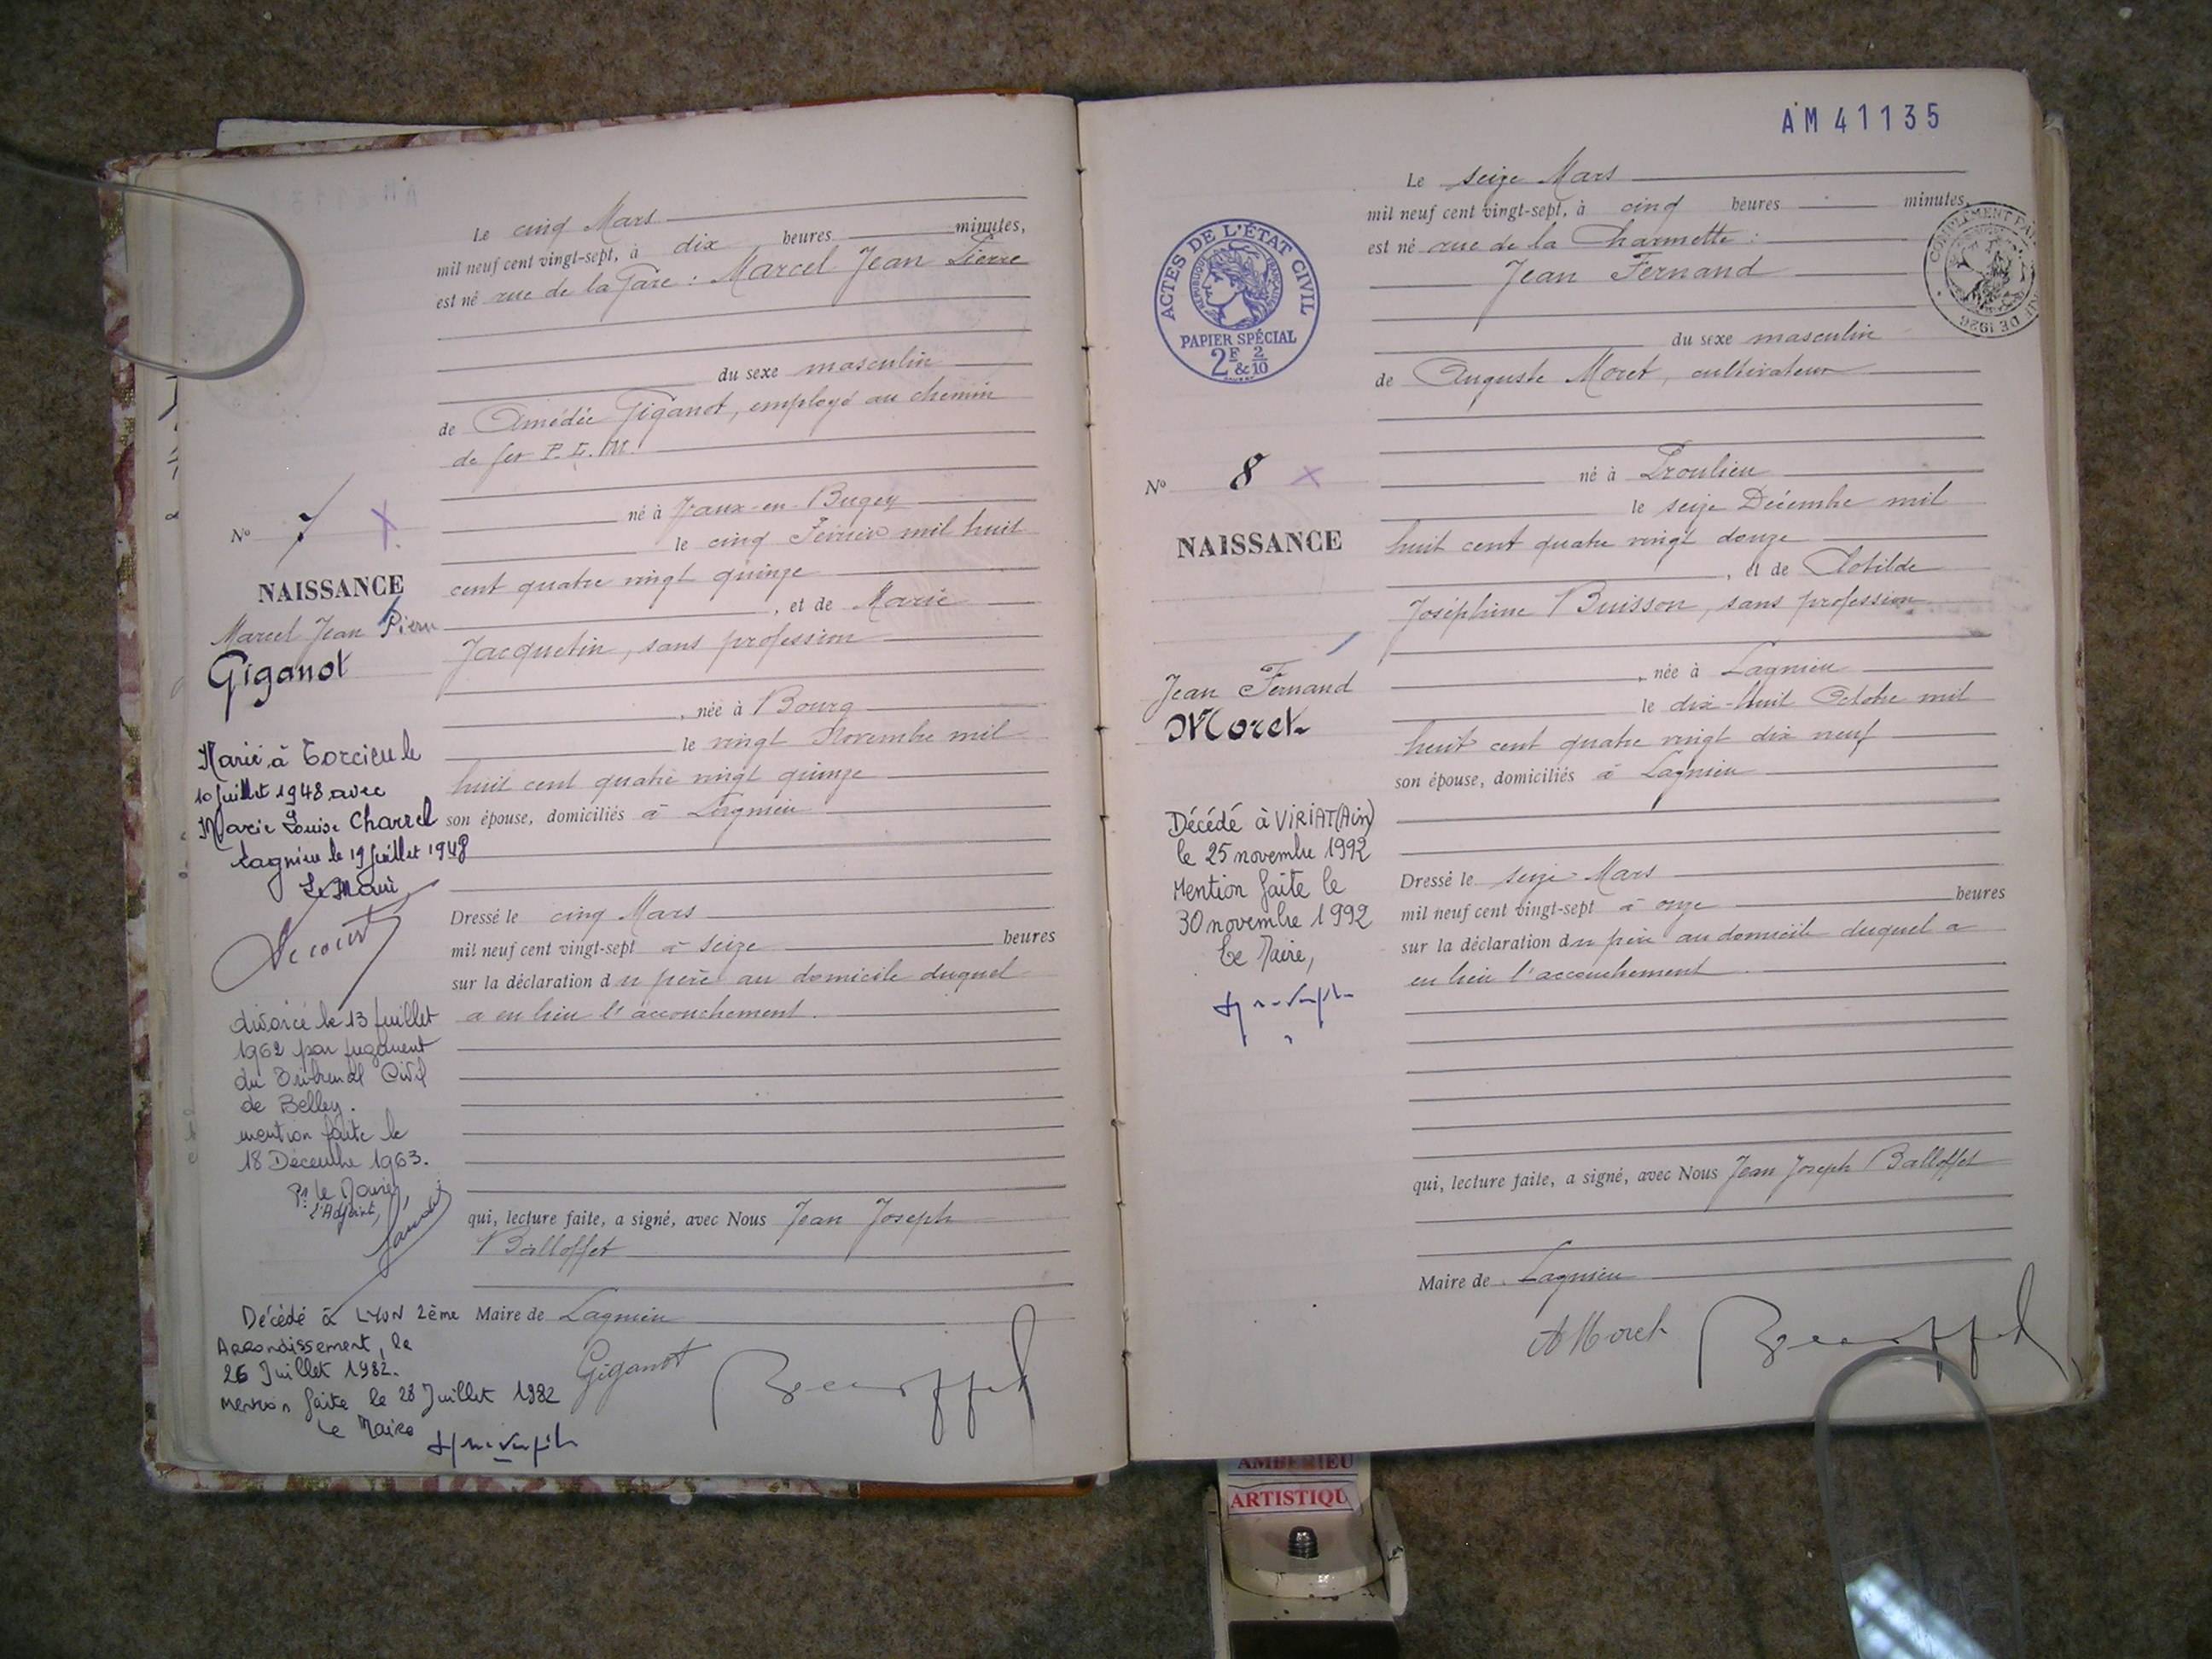 Le cinq Mars
mil neuf cent vingt-sept, à dix heures minutes,
est né rue de la Gare : Marcel Jean Pierre
du sexe masculin
de Amédée Giganot, employé au chemin
de fer P. L. M.
N° 7 X
né à Vaux-en-Bugey
le cinq Février mil huit
cent quatre vingt quinze
NAISSANCE
Marcel Jean Pierre
Giganot
, et de Marie
Jacquetin, sans profession
, née à Bourg
le vingt Novembre mil
huit cent quatre vingt quinze
son épouse, domiciliés à Lagnieu
Marié à Torcieu le
10 Juillet 1948 avec
Marie Louise Charrel
Lagnieu le 19 Juillet 1948
Le Maire
Dressé le cinq Mars
mil neuf cent vingt-sept à seize heures
sur la déclaration du père au domicile duquel
a eu lieu l'accouchement.
divorcé le 13 Juillet
1962 par jugement
du Tribunal Civil
de Belley.
mention faite le
18 Décembre 1963.
Pr le Maire,
L'Adjoint,
qui, lecture faite, a signé, avec Nous Jean Joseph
Balloffet
Maire de Lagnieu
Décédé à LYON 2ème
Arrondissement, le
26 Juillet 1982.
mention faite le 28 Juillet 1982
Le Maire
Giganot
AM 41135
Le seize Mars
mil neuf cent vingt-sept, à cinq heures minutes,
est né rue de la Charmette :
Jean Fernand
ACTES DE L'ÉTAT CIVIL
RÉPUBLIQUE FRANÇAISE
PAPIER SPÉCIAL
2F & 2/10
du sexe masculin
de Auguste Moret, cultivateur
N° 8 X
né à Proulieu
le seize Décembre mil
huit cent quatre vingt douze
NAISSANCE
, et de Clotilde
Joséphine Buisson, sans profession
Jean Fernand
Moret
, née à Lagnieu
le dix-huit Octobre mil
huit cent quatre vingt dix neuf
son épouse, domiciliés à Lagnieu
Décédé à VIRIAT (Ain)
le 25 novembre 1992
Mention faite le
30 novembre 1992
Le Maire,
Dressé le seize Mars
mil neuf cent vingt-sept à onze heures
sur la déclaration du père au domicile duquel a
eu lieu l'accouchement
qui, lecture faite, a signé, avec Nous Jean Joseph Balloffet
Maire de Lagnieu
A Moret
AMBERIEU
ARTISTIQU